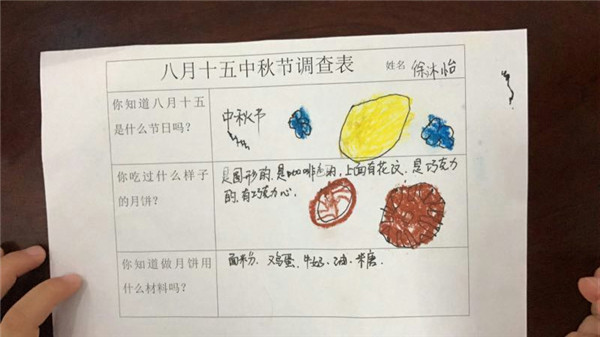 八月十五中秋节调查表 姓名 徐沐怡
你知道八月十五
是什么节日吗？
中秋节
你吃过什么样子
的月饼？
是圆形的.是咖啡色的,上面有花纹.是巧克力
的.有巧克力心.
你知道做月饼用
什么材料吗？
面粉.鸡蛋.牛奶、油.米.糖.